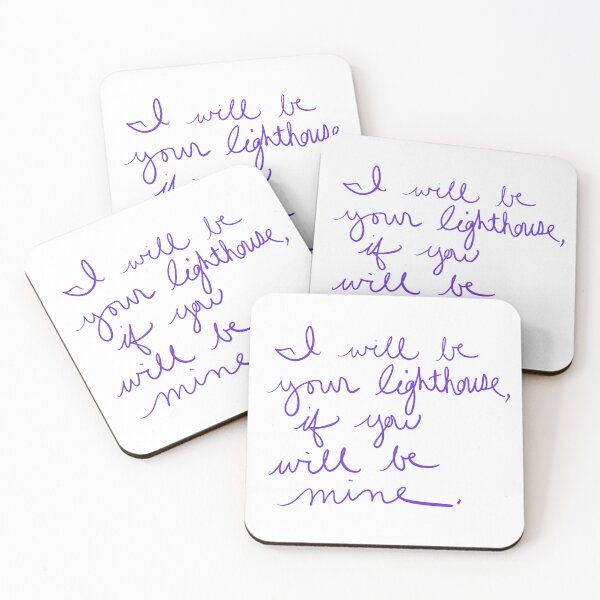 I will be
your lighthouse
if you
I will be
your lighthouse,
if you
will be
I will be
your lighthouse,
if you
will be
mine
I will be
your lighthouse,
if you
will be
mine.